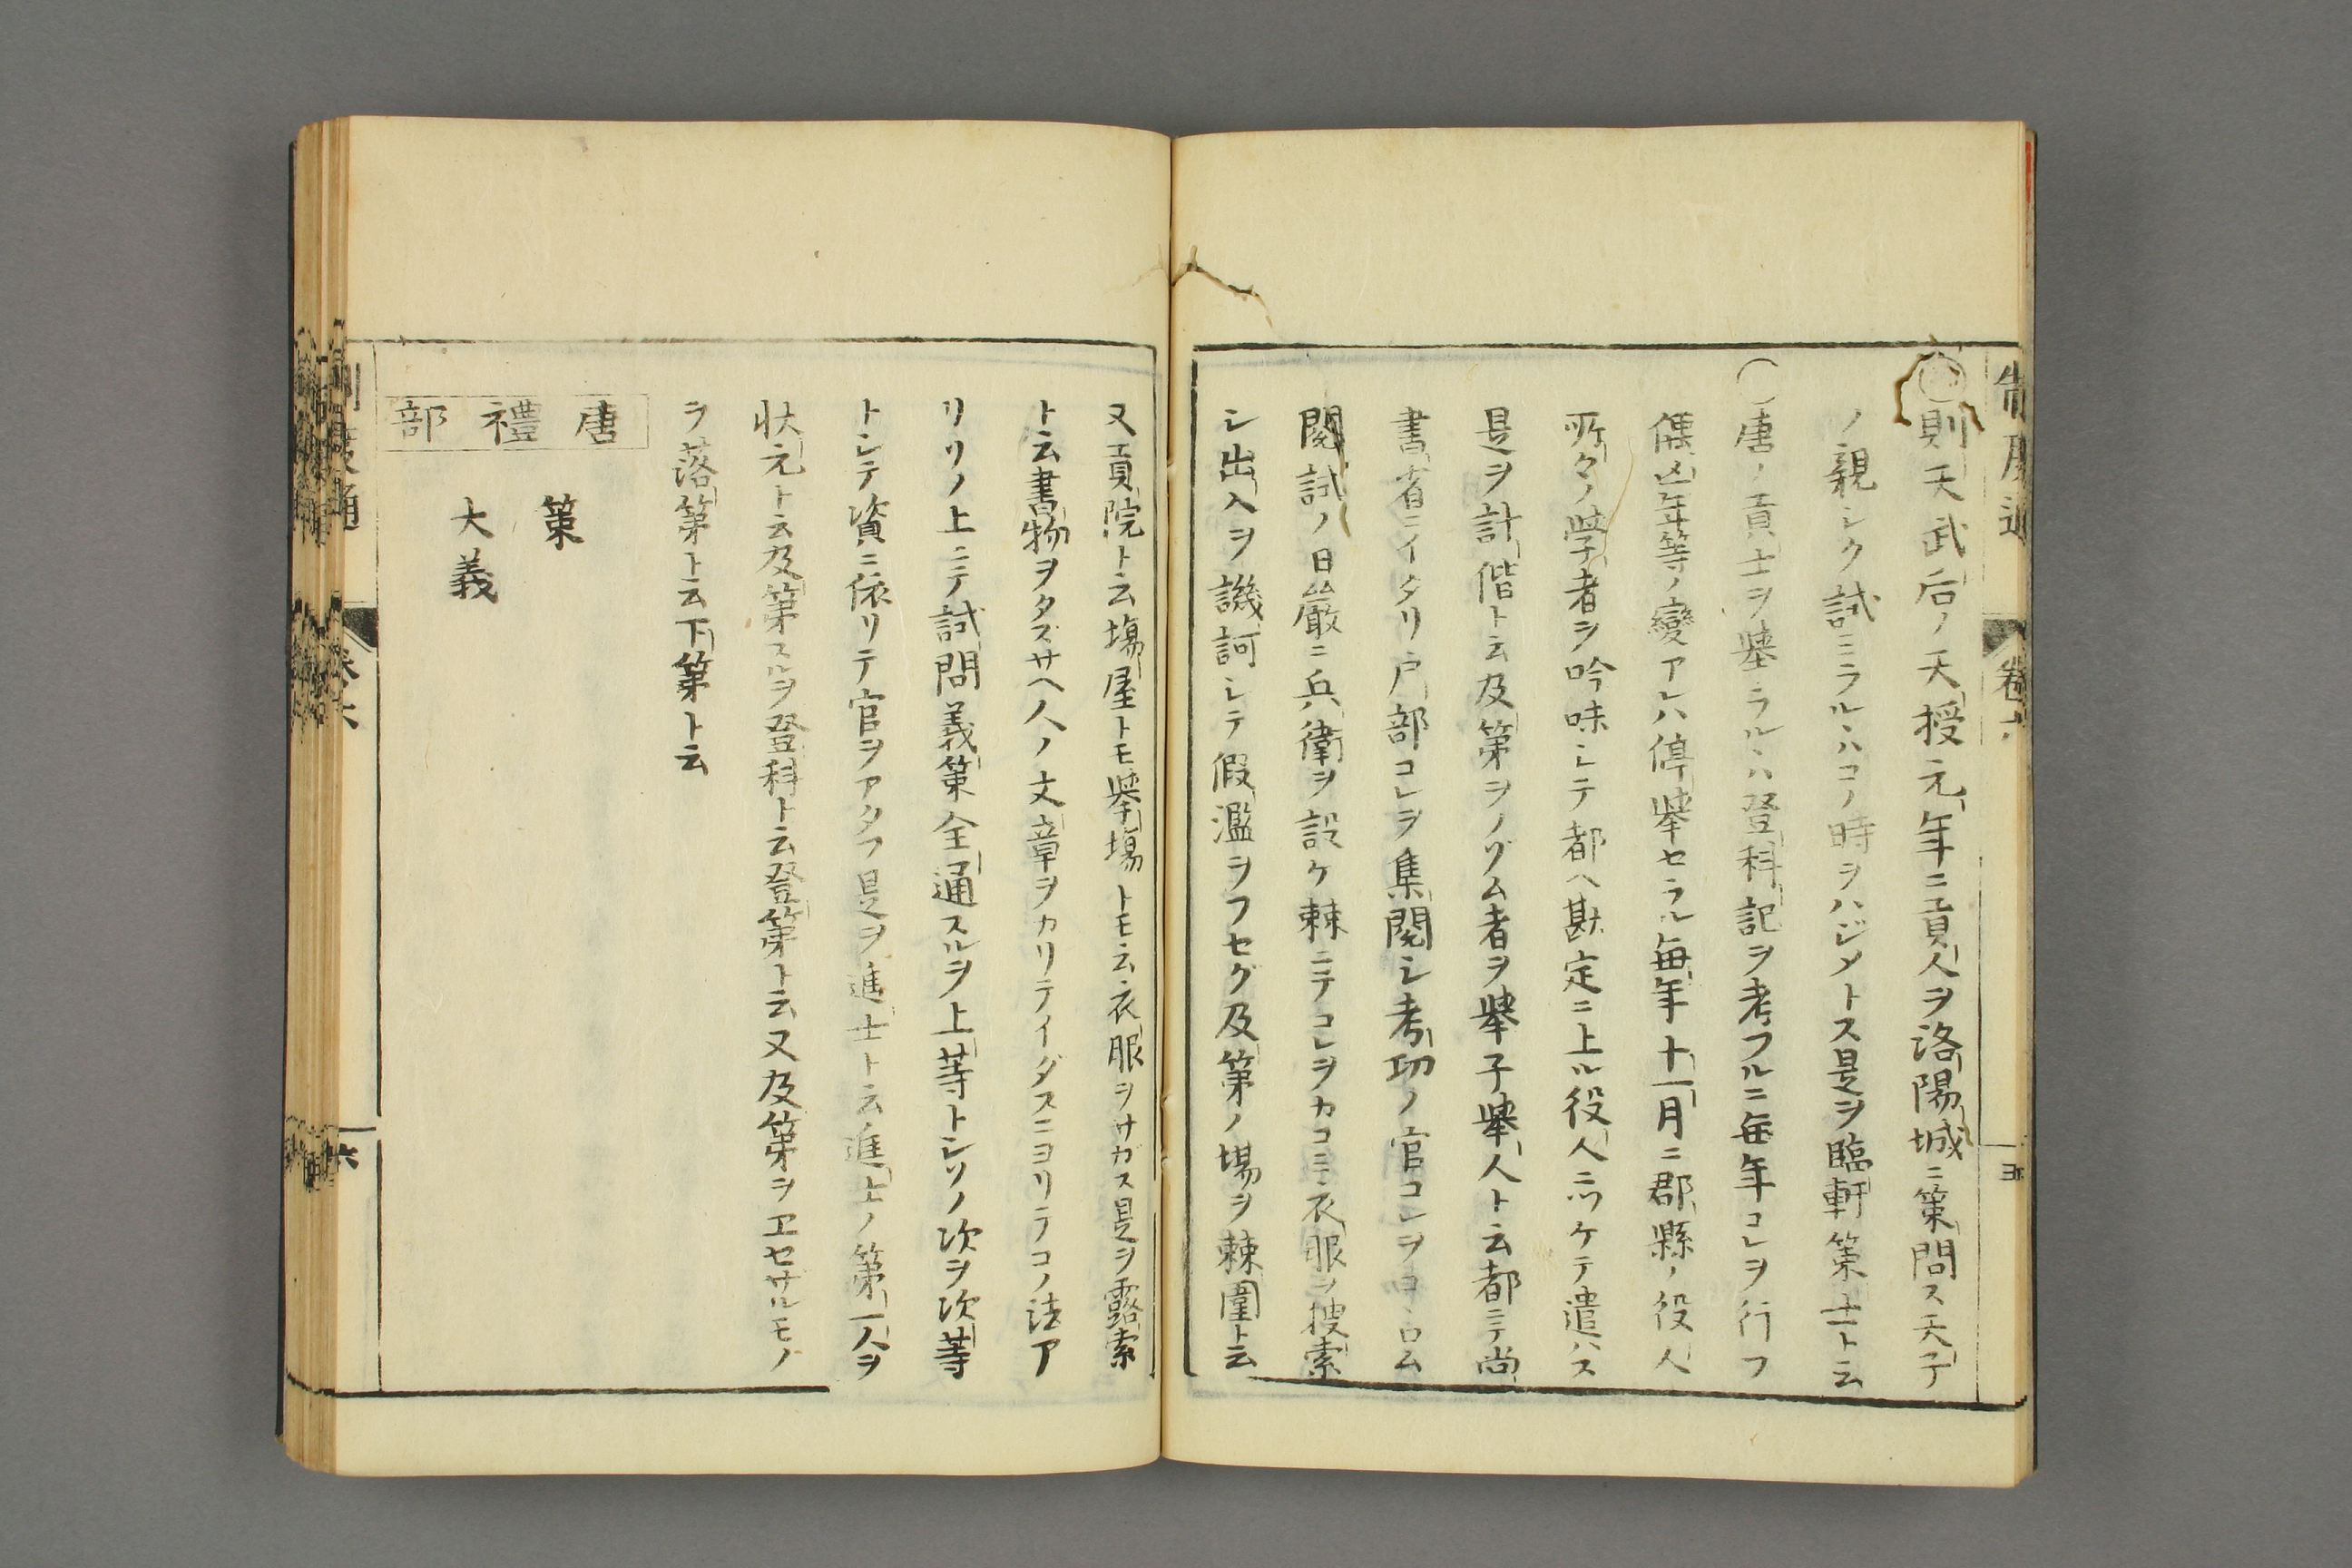 制度通 卷六
○則天武后ノ天授元年ニ貢人ヲ洛陽城ニ策問ス天子
ノ親シク試ミラルヽハコノ時ヲハジメトス是ヲ臨軒策士ト云
○唐ノ貢士ヲ擧ラルヽハ登科記ヲ考フルニ毎年コレヲ行フ
偶凶年等ノ變アレハ停擧セラル毎年十一月ニ郡縣ノ役人
所々ノ学者ヲ吟味シテ都ヘ勘定ニ上ル役人ニツケテ遣ハス
是ヲ計偕ト云及第ヲノゾム者ヲ擧子擧人ト云都ニテ尚
書省ニイタリ戸部コレヲ集閲シ考功ノ官コレヲコヽロム
閲試ノ日嚴ニ兵衛ヲ設ケ棘ニテコレヲカコミ衣服ヲ搜索
シ出入ヲ譏訶シテ假濫ヲフセグ及第ノ場ヲ棘圍ト云
又貢院ト云塲屋トモ擧塲トモ云衣服ヲサガス是ヲ露索
ト云書物ヲタズサヘ人ノ文章ヲカリテイダスニヨリテコノ法ア
リソノ上ニテ試問義策全通スルヲ上等トシソノ次ヲ次等
トシテ資ニ依リテ官ヲアタフ是ヲ進士ト云進士ノ第一人ヲ
状元ト云及第スルヲ登科ト云登第ト云又及第ヲヱセサルモノ
ヲ落第ト云下第ト云
唐禮部
策
大義
制度通 卷六 六